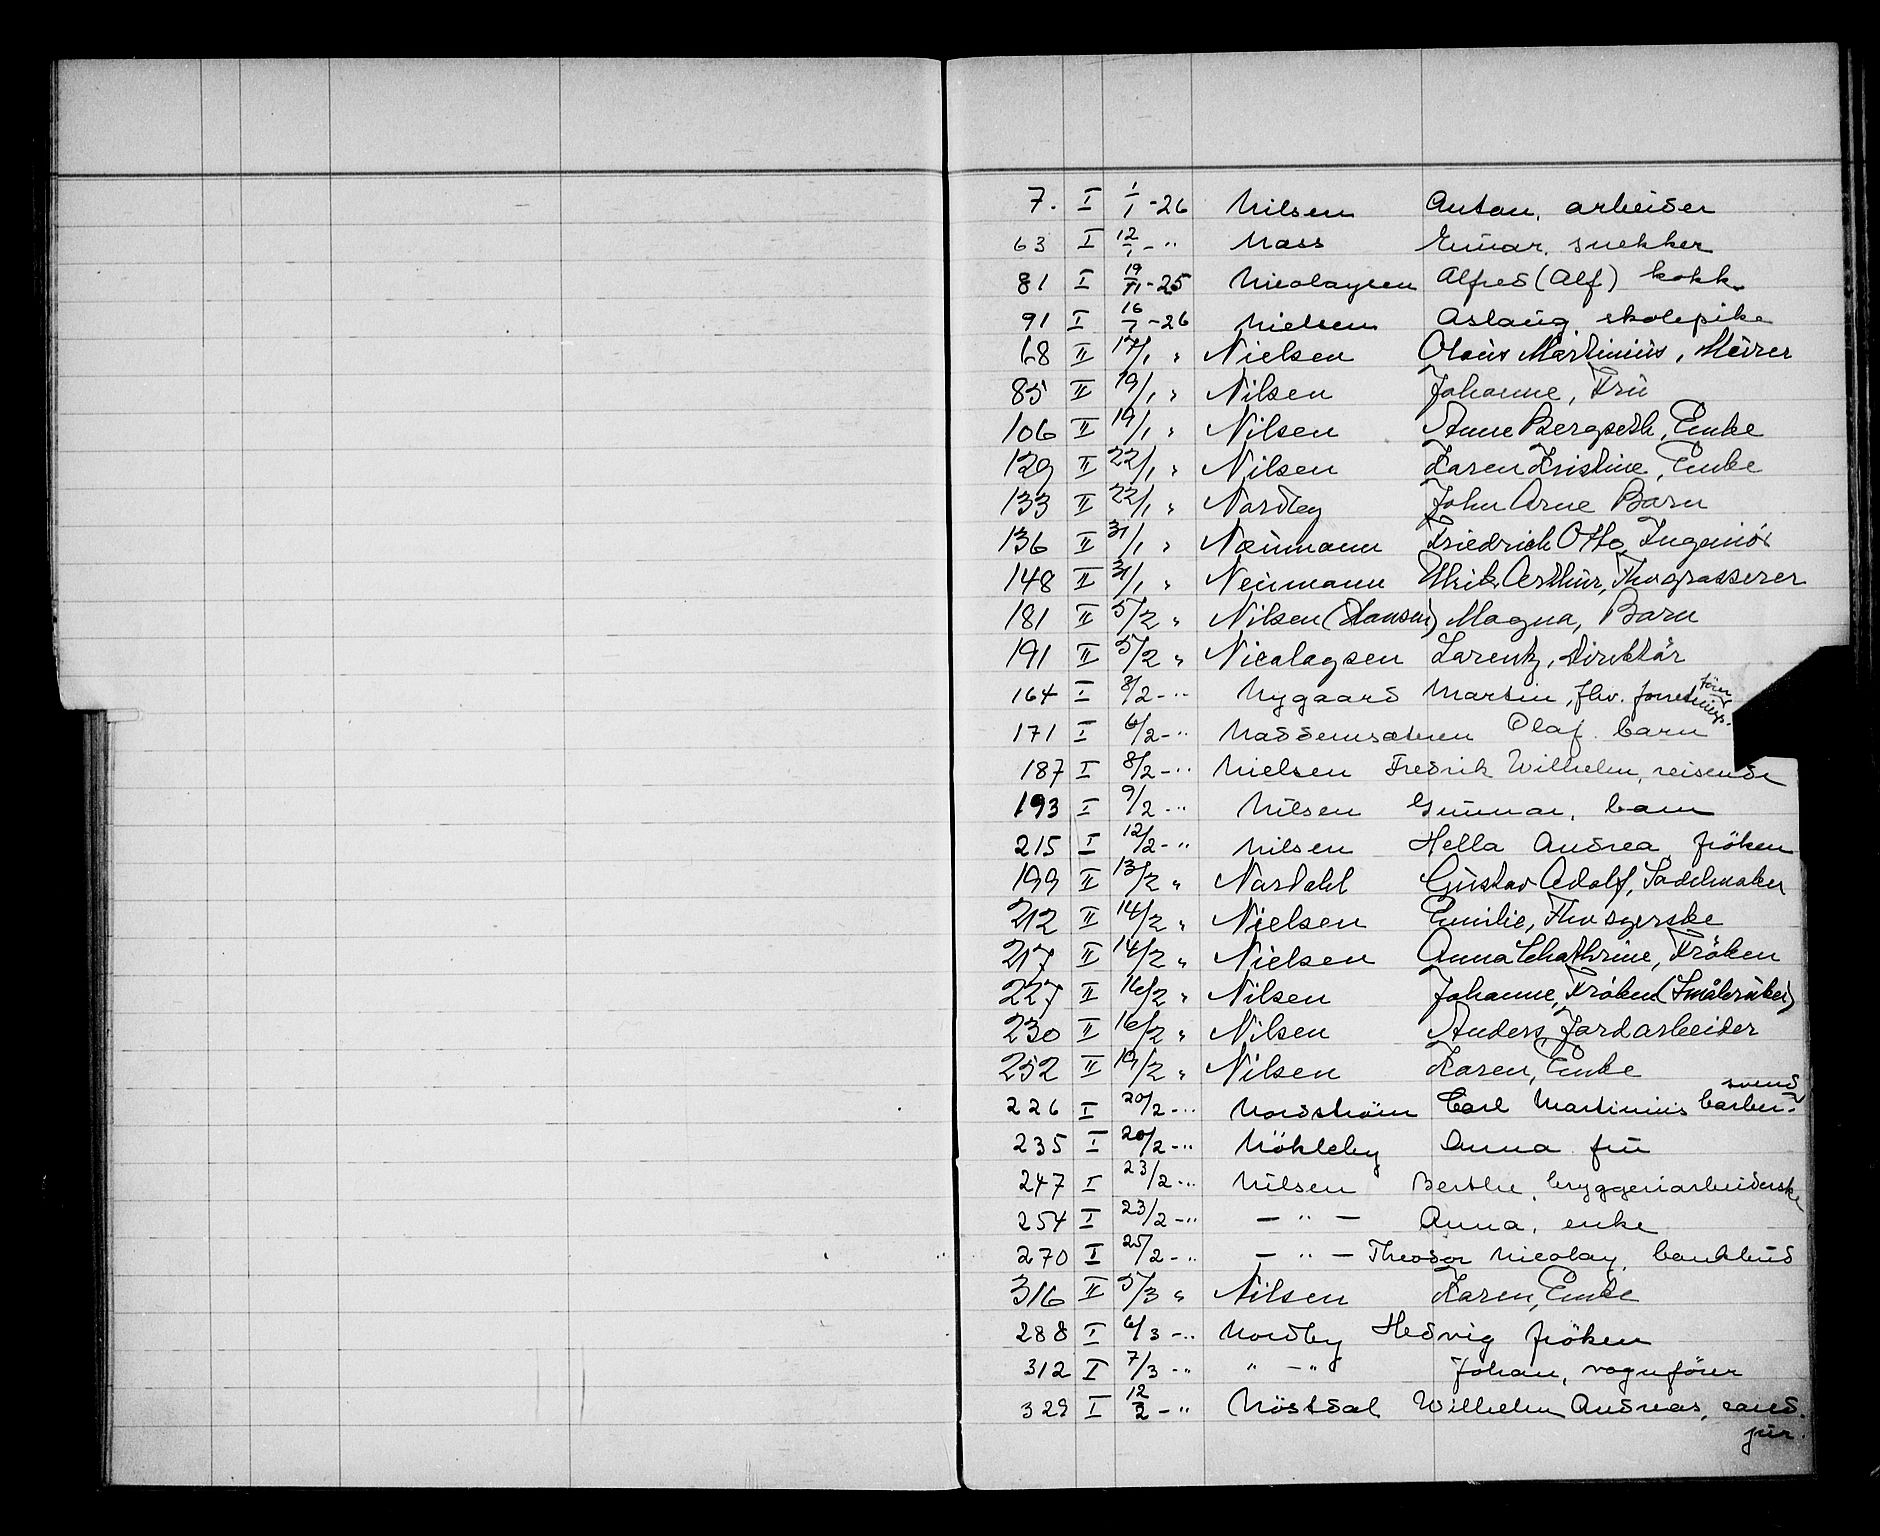 7. I 1/1 -26 Nilsen Anton, arbeider
63 I 12/1 - " Næss Einar, snekker
81 I 19/11 -25 Nicolaysen Alfred (Alf) kokk.
91 I 16/1 -26 Nielsen Aslaug, skolepike
68 II 17/1 " Nielsen Olaus Martinius, Murer
85 II 19/1 " Nilsen Johanne, Fru
106 II 19/1 " Nilsen Anne Bergseth, Enke
129 II 22/1 " Nilsen Karen Kristine, Enke
133 II 22/1 " Nordby John Arne Barn
136 II 31/1 " Neumann Friedrich Otto, Ingeniör
148 II 31/1 " Neumann Ulrik Arthur, Fhv grosserer
181 II 5/2 " Nilsen (Hansen) Magna, Barn
191 II 5/2 " Nicolaysen Lorentz, Direktör
164 I 8/2 - " Nygaard Martin, fhv. forretnings-
förer
171 I 6/2 - " Naddumsætren Olaf barn
187 I 8/2 - " Nielsen Fredrik Wilhelm, reisende
193 I 9/2 - " Nilsen Gunnar, barn
215 I 12/2 - " Nilsen Hella Andrea fröken
199 II 13/2 " Nordahl Gustav Adolf, Sadelmaker
212 II 14/2 " Nielsen Emilie, Fhv syerske
217 II 14/2 " Nielsen Anna Chathrine, Fröken
227 II 16/2 " Nilsen Johanne, Fröken (Småbruker)
230 II 16/2 " Nilsen Anders, Jordarbeider
252 II 19/2 " Nilsen Karen, Enke
226 I 20/2 - " Nordström Carl Martinius barber-
svend
235 I 20/2 - " Nökleby Anna fru
247 I 23/2 - " Nilsen Berthe, bryggeriarbeiderske
254 I 23/2 - " — " — Anna, enke
270 I 25/2 - " — " — Theodor Nicolay, bankbud
316 II 5/3 " Nilsen Karen, Enke
288 I 6/3 - " Nordby Hedvig fröken
312 I 7/3 - " " - " Johan, vognförer
329 I 12/2 - " Nöstdal Wilhelm Andreas, cand.
jur.